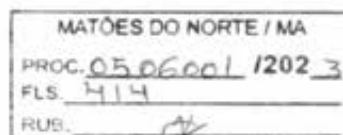 MATÕES DO NORTE / MA
PROC. 0506001 /202 3
FLS. 414
RUB.